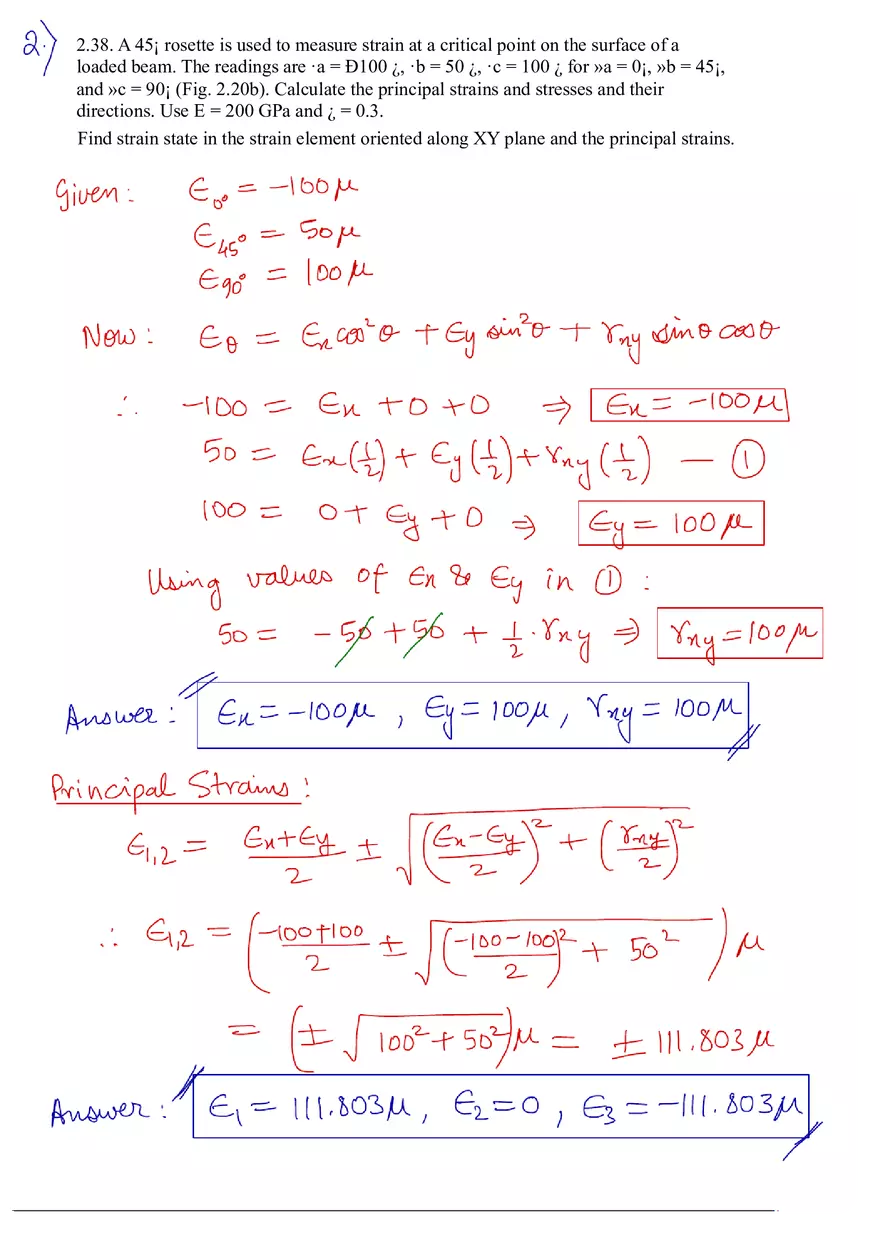 2.)
2.38. A 45¡ rosette is used to measure strain at a critical point on the surface of a
loaded beam. The readings are ·a = Ð100 ¿, ·b = 50 ¿, ·c = 100 ¿ for »a = 0¡, »b = 45¡,
and »c = 90¡ (Fig. 2.20b). Calculate the principal strains and stresses and their
directions. Use E = 200 GPa and ¿ = 0.3.
Find strain state in the strain element oriented along XY plane and the principal strains.
Given: ϵ₀° = -100μ
ϵ₄₅° = 50μ
ϵ₉₀° = 100μ
Now: ϵθ = ϵx cos²θ + ϵy sin²θ + γxy sinθ cosθ
∴ -100 = ϵx + 0 + 0 ⇒ ϵx = -100μ
50 = ϵx(1/2) + ϵy(1/2) + γxy(1/2) — ①
100 = 0 + ϵy + 0 ⇒ ϵy = 100μ
Using values of ϵx & ϵy in ① :
50 = -50 + 50 + 1/2 · γxy ⇒ γxy = 100μ
Answer: ϵx = -100μ , ϵy = 100μ, γxy = 100μ
Principal Strains:
ϵ1,2 = (ϵx+ϵy)/2 ± √(((ϵx-ϵy)/2)² + (γxy/2)²)
∴ ϵ1,2 = ((-100+100)/2 ± √(((-100-100)/2)² + 50²)) μ
= (± √(100² + 50²))μ = ± 111.803μ
Answer: ϵ1 = 111.803μ, ϵ2 = 0 , ϵ3 = -111.803μ